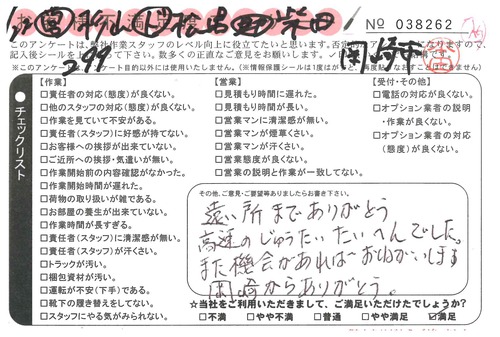 No 038262
このアンケートは、弊社作業スタッフのレベル向上に役立てたいと思います。
299
岡崎市
チェックリスト
【作業】
□責任者の対応(態度)が良くない。
□他のスタッフの対応(態度)が良くない。
□作業を見ていて不安がある。
□責任者(スタッフ)に好感が持てない。
□お客様への挨拶が出来ていない。
□ご近所への挨拶・気遣いが無い。
□作業開始前の内容確認がなかった。
□作業開始時間が遅れた。
□荷物の取り扱いが雑である。
□お部屋の養生が出来ていない。
□作業時間が長すぎる。
□責任者(スタッフ)に清潔感が無い。
□責任者(スタッフ)が汗くさい。
□トラックが汚い。
□梱包資材が汚い。
□運転が不安(下手)である。
□靴下の履き替えをしてない。
□スタッフにやる気がみられない。
【営業】
□見積もり時間に遅れた。
□見積もり時間が長い。
□営業マンに清潔感が無い。
□営業マンが煙草くさい。
□営業マンが汗くさい。
□営業態度が良くない。
□営業の説明と作業が一致してない。
【受付・その他】
□電話の対応が良くない。
□オプション業者の説明
・作業が良くない。
□オプション業者の対応
(態度)が良くない。
その他、ご意見・ご要望等ありましたらお書き下さい。
遠い所までありがとう
高速のじゅうたいたいへんでした。
また機会があれば〜おねがいします
岡崎からありがとう。
☆当社をご利用いただきまして、ご満足いただけてしょうか?
□不満 □やや不満 □普通 □やや満足 ☑満足